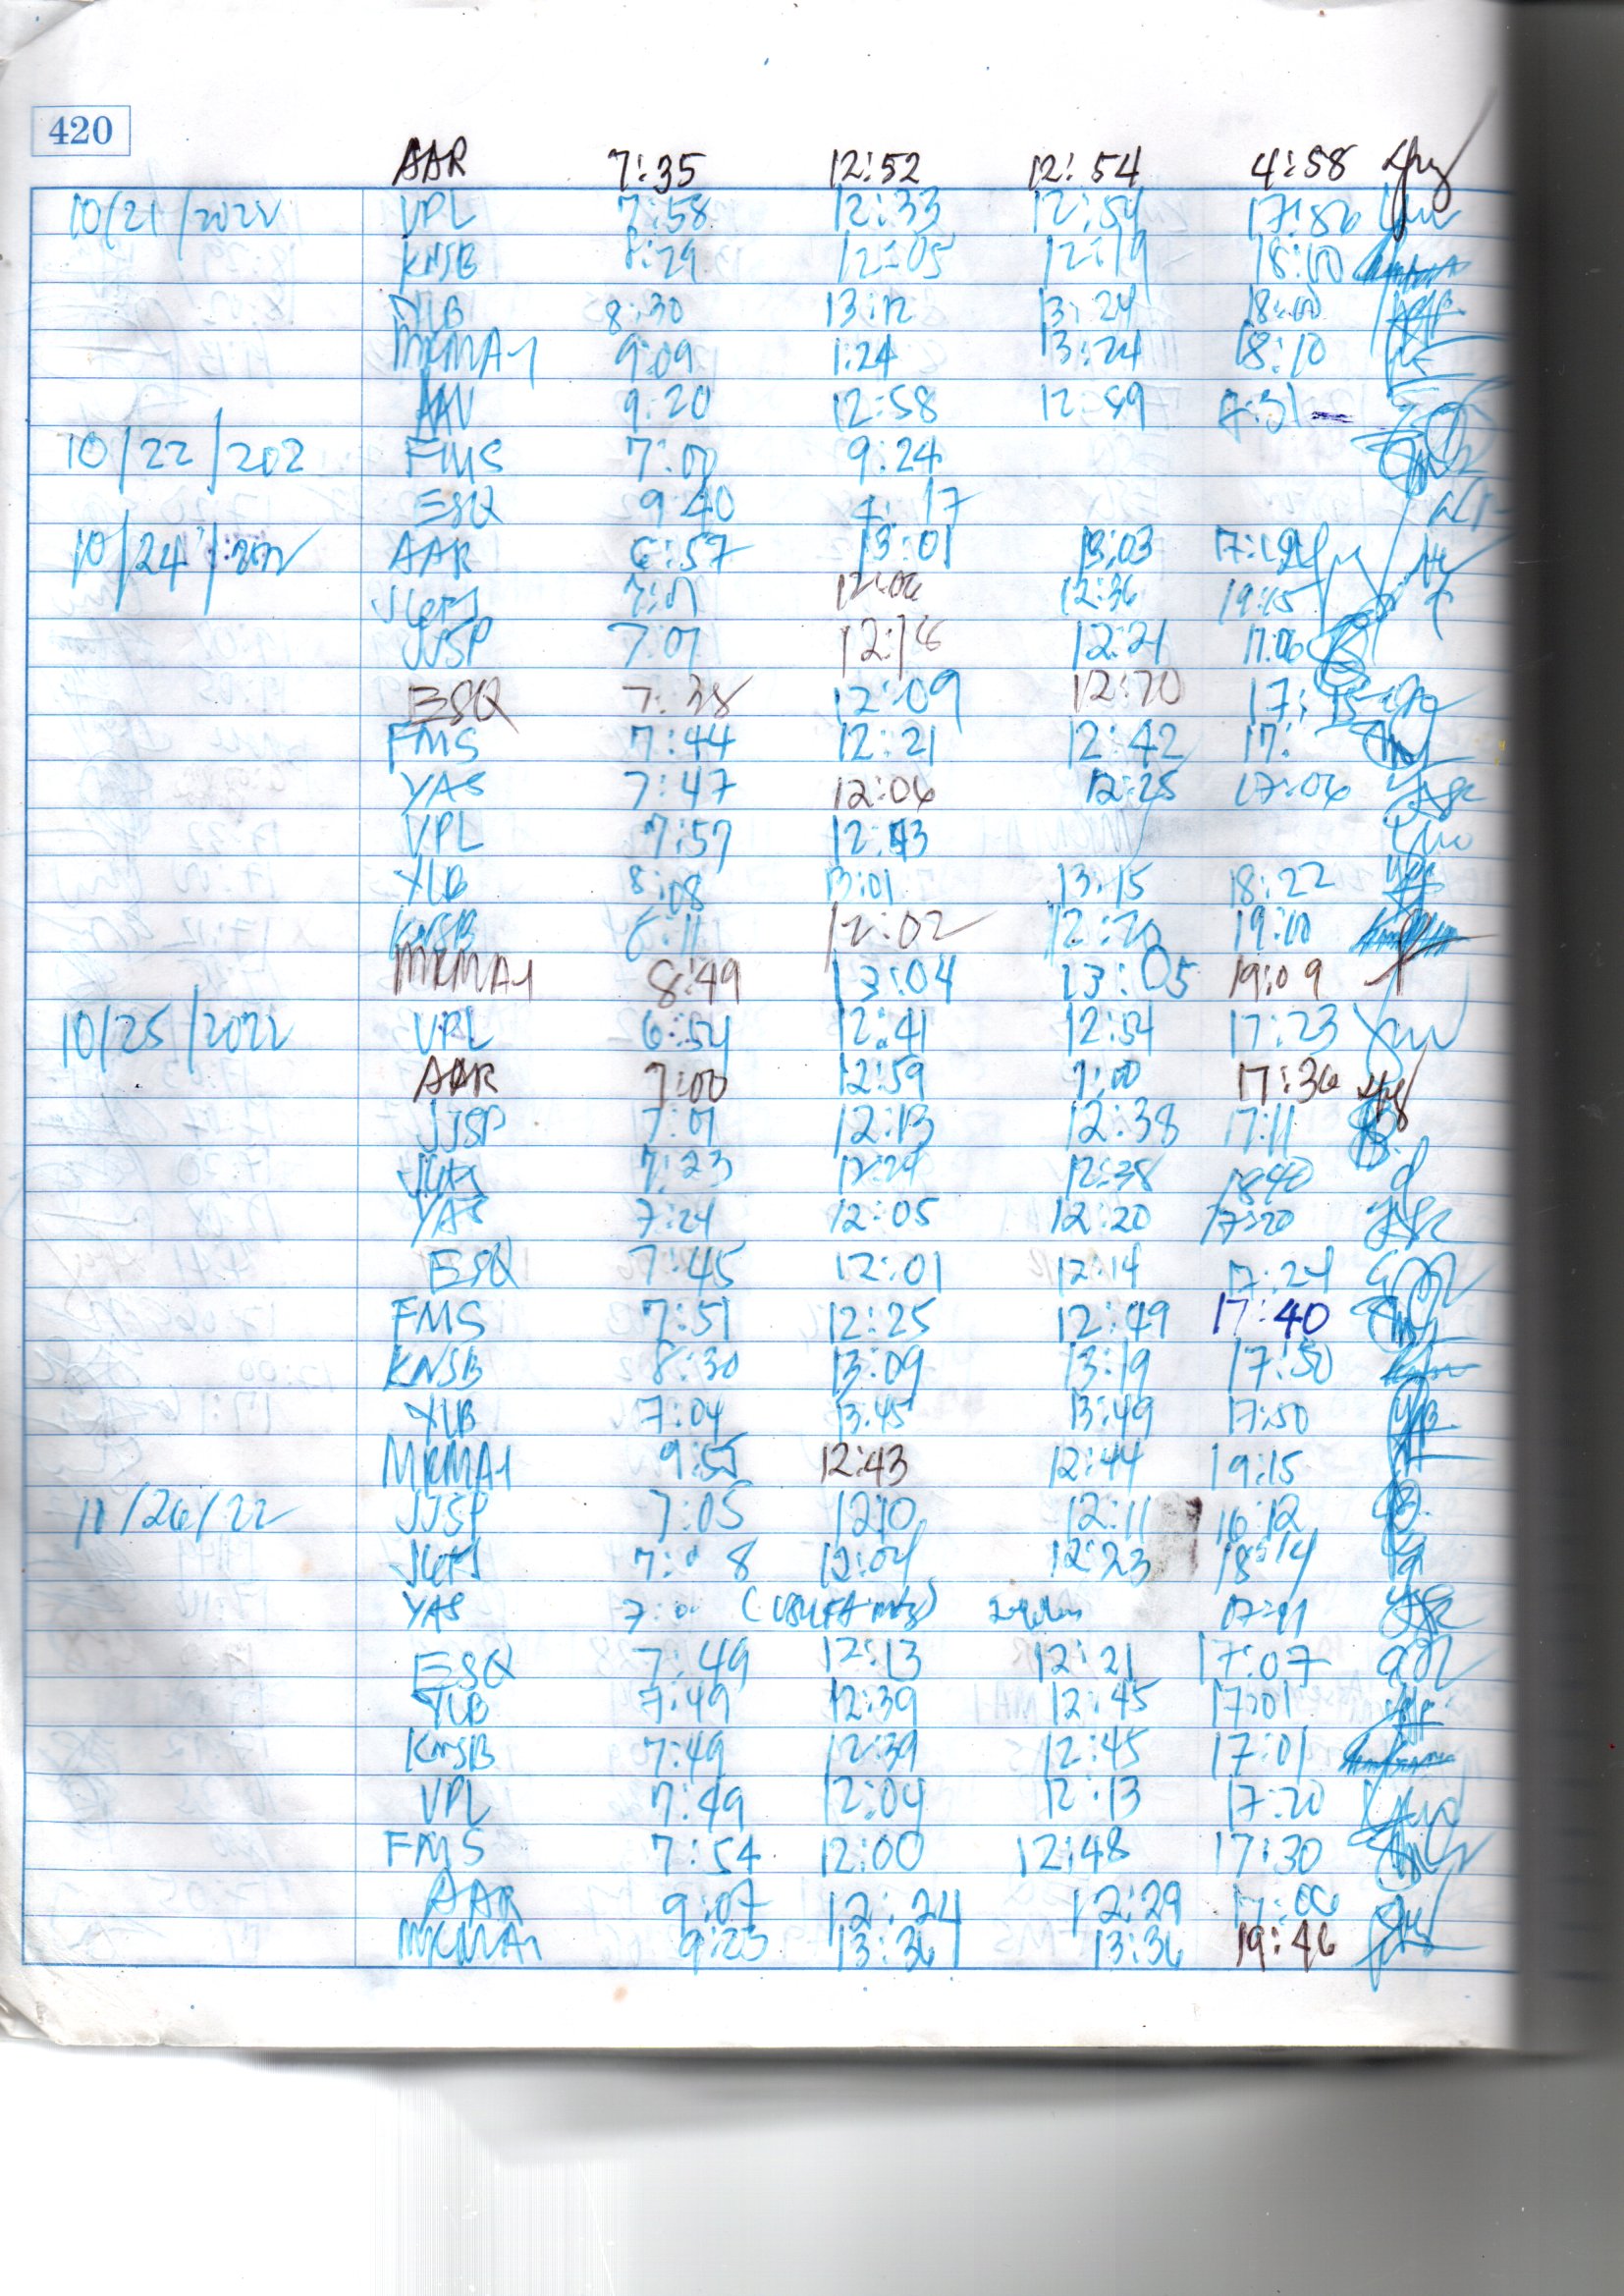 420
AAR 7:35 12:52 12:54 4:58
10/21/2022 VPL 7:58 12:33 12:54
KNSB 8:29 12:05 12:19 18:10
YLB 8:30 13:12 13:24 18:10
MKMA1 9:09 1:24 13:24 18:10
AAV 9:20 12:58 12:59
10/22/202 FMS 7:00 9:24
ESQ 9:40 4:17
10/24/2022 AAR 6:57 13:01 13:03
7:01 12:06 12:36 19:15
JJSP 7:07 12:18 12:21 17:06
ESQ 7:38 12:09 12:20 17:15
FMS 7:44 12:21 12:42 17:
YAS 7:47 12:06 12:25 17:06
VPL 7:57 12:43
YLB 8:08 13:01 13:15 18:22
KNSB 12:02 12:20 19:10
MKMA1 8:49 13:04 13:05 19:09
10/25/2022 VPL 6:54 12:41 12:54 17:23
AAR 7:00 12:59 1:00 17:36
JJSP 7:07 12:13 12:38 17:11
7:23 12:29 12:38 18:40
YAS 7:24 12:05 12:20 17:20
ESQ 7:45 12:01 12:14 17:24
FMS 7:51 12:25 12:49 17:40
KNSB 8:30 13:09 13:19 17:50
YLB 7:04 13:45 13:49 17:50
MKMA1 9:55 12:43 12:44 19:15
10/26/22 JJSP 7:05 12:10 12:11 16:12
7:08 12:04 12:23 18:14
YAS 7:0
ESQ 7:49 12:13 12:21 17:07
YLB 7:49 12:39 12:45 17:01
KNSB 7:49 12:39 12:45 17:01
VPL 7:49 12:04 12:13 17:20
FMS 7:54 12:00 12:48 17:30
AAR 9:07 12:24 12:29 17:06
MKMA1 9:23 13:36 13:36 19:46